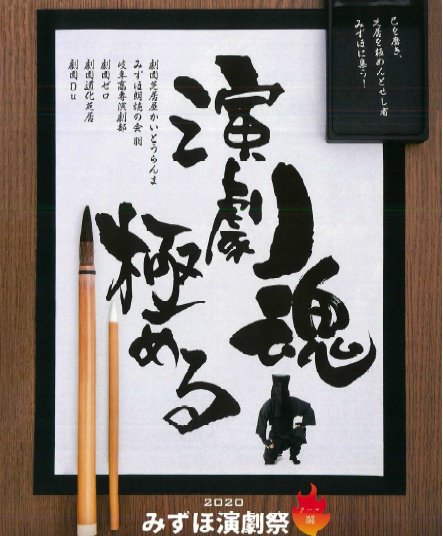 己を磨き、
芝居を極めんとせし者
みずほに集う！
演劇魂
極める
劇団芝居屋かいとうらんま
みずほ朗読の会 羽
岐阜高専演劇部
劇団ゼロ
劇団道化芝居
劇団Du
2020
みずほ演劇祭